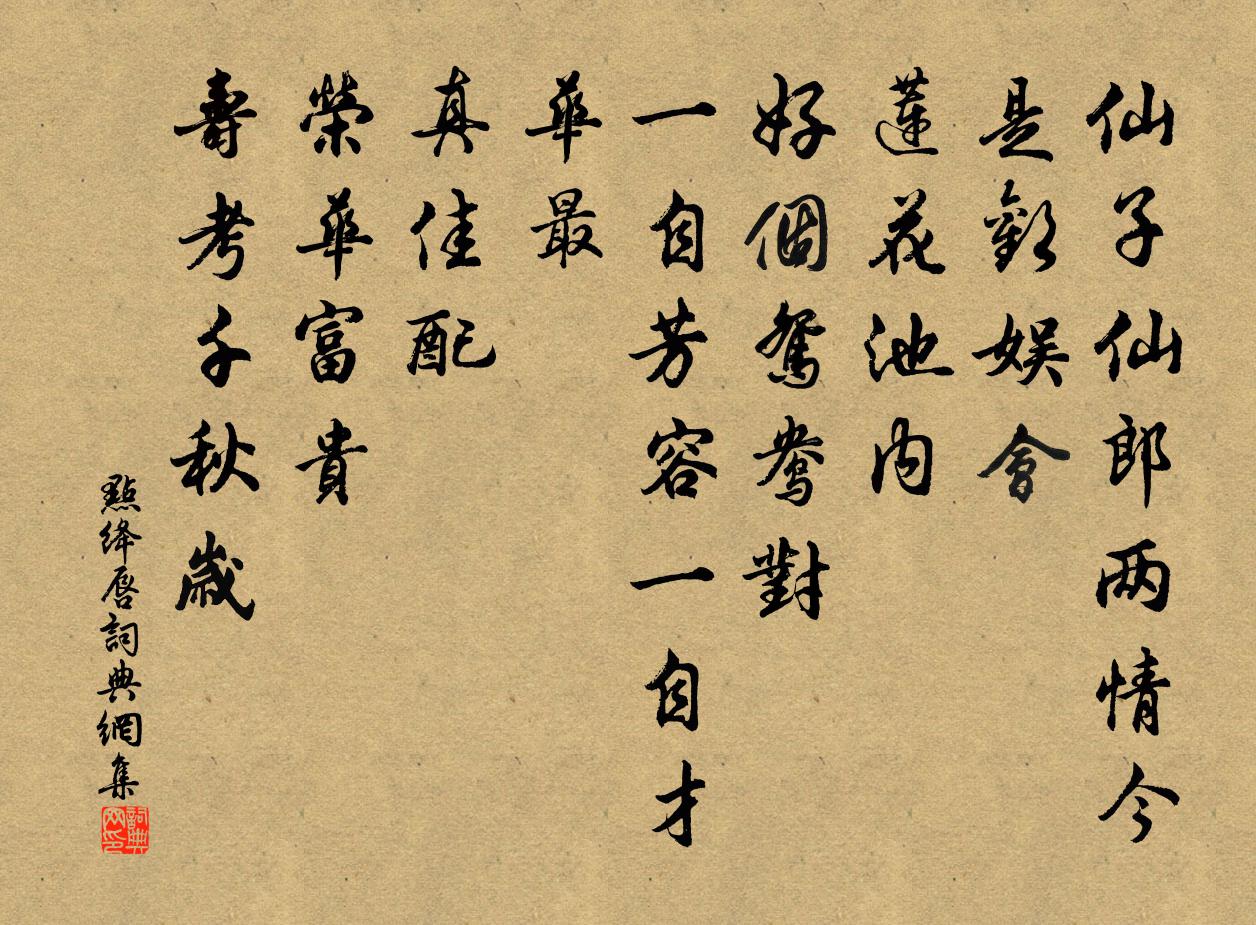 仙子仙郎两情今
是歡娱會
蓮花池内
好個鴛鴦對
一自芳容一自才
華最
真佳配
榮華富貴
壽考千秋歲
點絳唇詞典網集
詞典网印